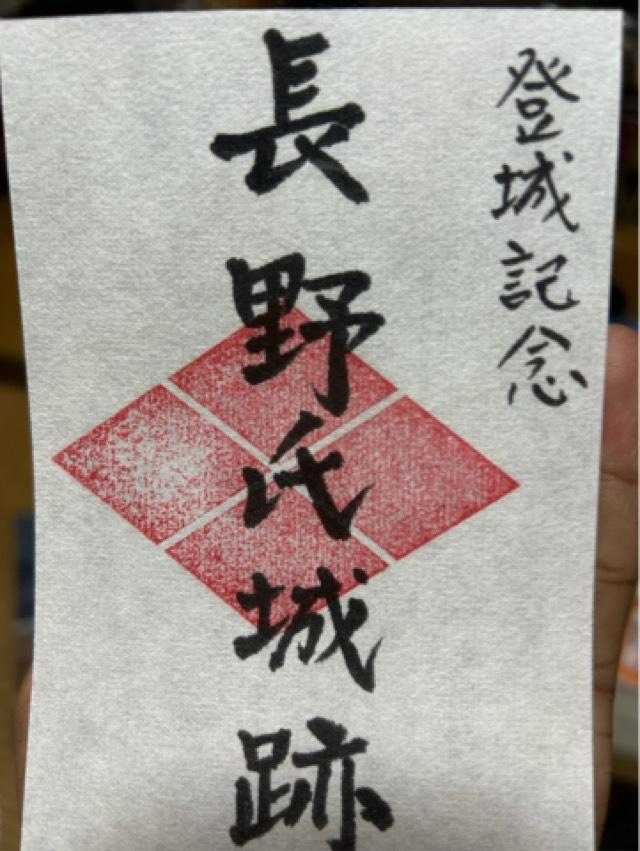 登城記念
長野氏城跡